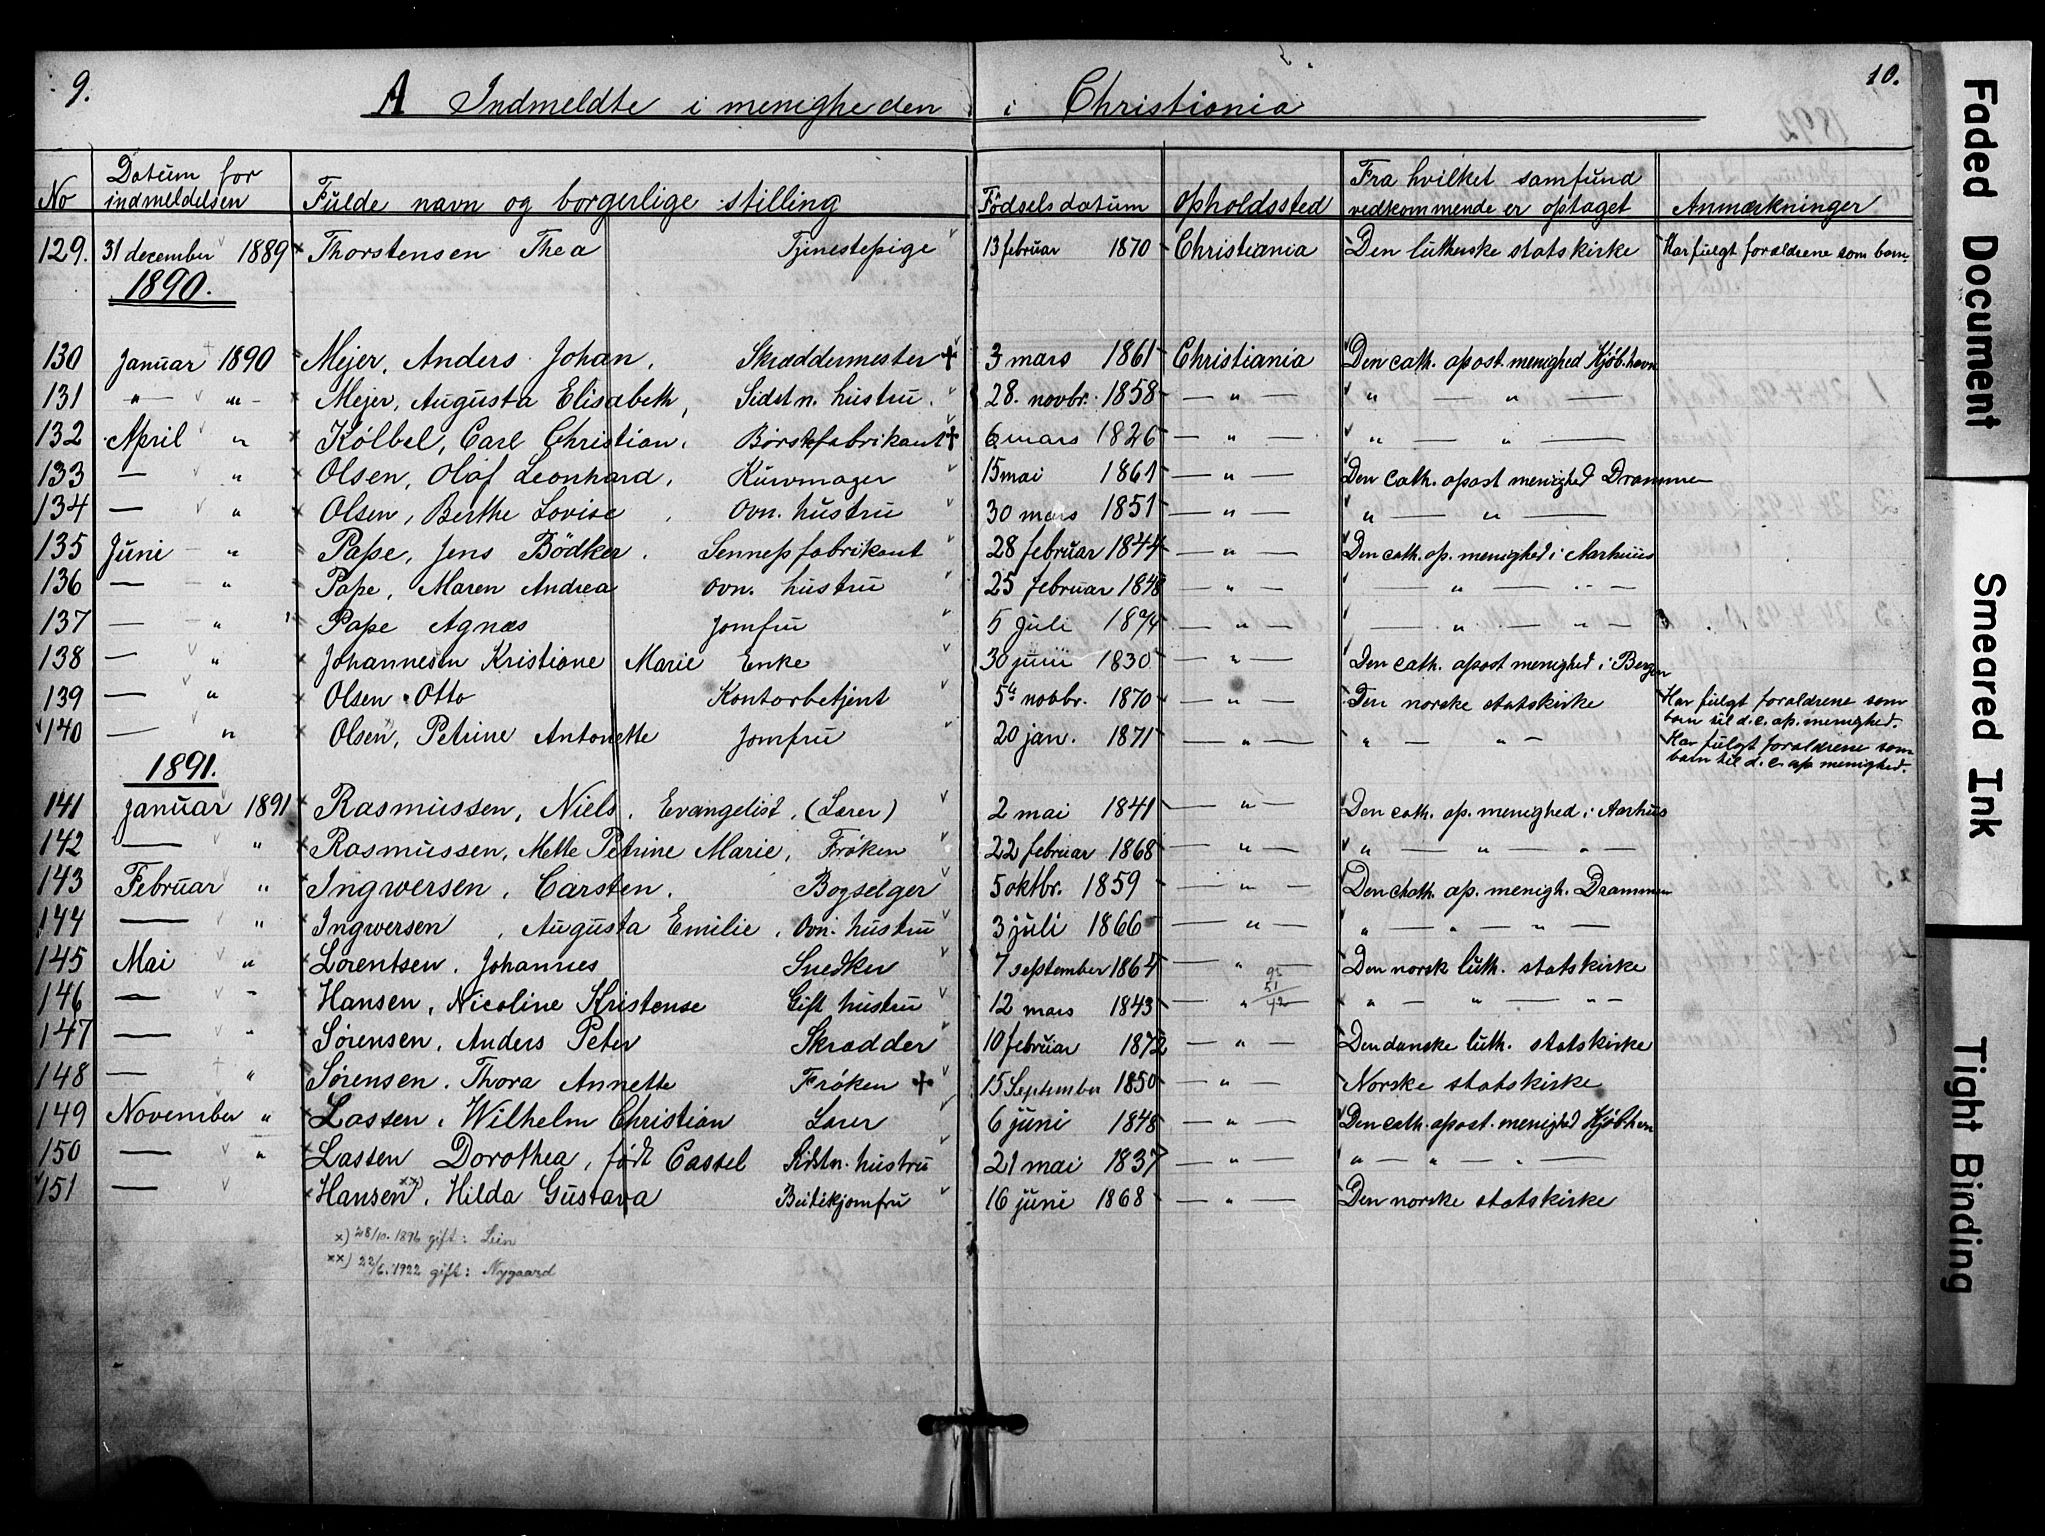 9. A Indmeldte i menigheden i Christiania 10.
No Datum for indmeldelsen Fulde navn og borgerlige stilling Fødselsdatum Opholdssted Fra hvilket samfund vedkommende er optaget Anmærkninger
129. 31 december 1889 Thorstensen Thea Tjenestepige 13 februar 1870 Christiania Den lutherske statskirke Har fulgt forældrene som barn.
1890.
130 Januar 1890 Mejer, Anders Johan, Skræddermester + 3 mars 1861 Christiania Den cath. apost. menighed Kjøb.havn
131 — " — Mejer, Augusta Elisabeth, Sidstn. hustru. 28. novbr. 1858 — " — " — " —
132 April " Kölbel, Carl Christian, Børstefabrikant + 6 mars 1826 — " — " — " —
133 — " Olsen, Olaf Leonhard, Kurvmager 15 mai 1861 — " — Den cath. apost menighed Drammen
134 — " Olsen, Berthe Lovise, Ovn. hustru 30 mars 1851 — " — " — " —
135 Juni — " Pape, Jens Bödker. Sennepsfabrikant 28 februar 1844 — " — Den cath. ap. menighed i Aarhuus
136 — " Pape, Maren Andrea ovn. hustru 25 februar 1848 — " — — " — " —
137 — " Pape Agnæs Jomfru 5 Juli — " — — " — " —
138 — " Johannesen Kristiane Marie Enke 30 juni 1830 — " — Den cath. apost menighed i Bergen
139 — " Olsen Otto Kontorbetjent 5te novbr. 1870 — " — Den norske statskirke Har fulgt forældrene som
barn til d. c. ap. menighed.
140 — " Olsen, Petrine Antonette Jomfru 20 jan. 1871 — " — " — " — Har fulgt forældrene som
barn til d. c. ap. menighed.
1891.
141 januar 1891 Rasmussen, Niels, Evangelist, (Lærer) 2 mai 1841 — " — Den cath. ap. menighed i Aarhus
142 — " Rasmussen, Mette Petrine Marie, Frøken 22 februar 1868 — " — " — " — " —
143 Februar " Ingwersen, Carsten, Bogselger 5 oktbr. 1859 — " — Den chath. ap. menigh. Drammen
144 — " Ingwersen, Augusta Emilie, Ovn. hustru 3 juli 1866 — " — " — " — " —
145 Mai " Lorentsen, Johannes Snedker 7 september 1864 — " — Den norsk luth. statskirke
146 — " Hansen, Nicoline Kristense Gift hustru 12 mars 1843 — " — " — " — " —
147 — " Sørensen, Anders Peter Skrædder 10 februar 1872 — " — Den danske luth. statskirke
148 — " Sørensen, Thora Annette Frøken + 15 September 1850 — " — Norske statskirke
149 November " Lassen, Wilhelm Christian Lærer 6 juni 1848 — " — Den cath. apost. menighed Kjøbhvn
150 — " Lassen Dorothea, født Cassel Sidstn. hustru 21 mai 1837 — " — " — " — " —
151 — Hansen xx), Hilda Gustava Butikjomfru 16 juni 1868 — " — Den norske statskirke
x) 28/10. 1896 gift: Lein
xx) 22/6. 1922 gift: Nygaard
Faded Document
Smeared Ink
Tight Binding